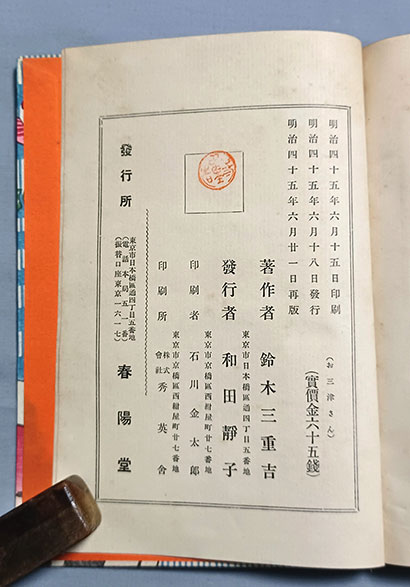 明治四十五年六月十五日印刷
明治四十五年六月十八日發行
明治四十五年六月廿一日再版
(お三津さん)
(實價金六十五錢)
著作者 鈴木三重吉
東京市日本橋區通四丁目五番地
發行者 和田靜子
東京市京橋區西紺屋町廿七番地
印刷者 石川金太郎
東京市京橋區西紺屋町廿七番地
印刷所 株式會社 秀英舍
發行所
東京市日本橋區通四丁目五番地
(電話本局五一番)
(振替口座東京一六一七)
春陽堂